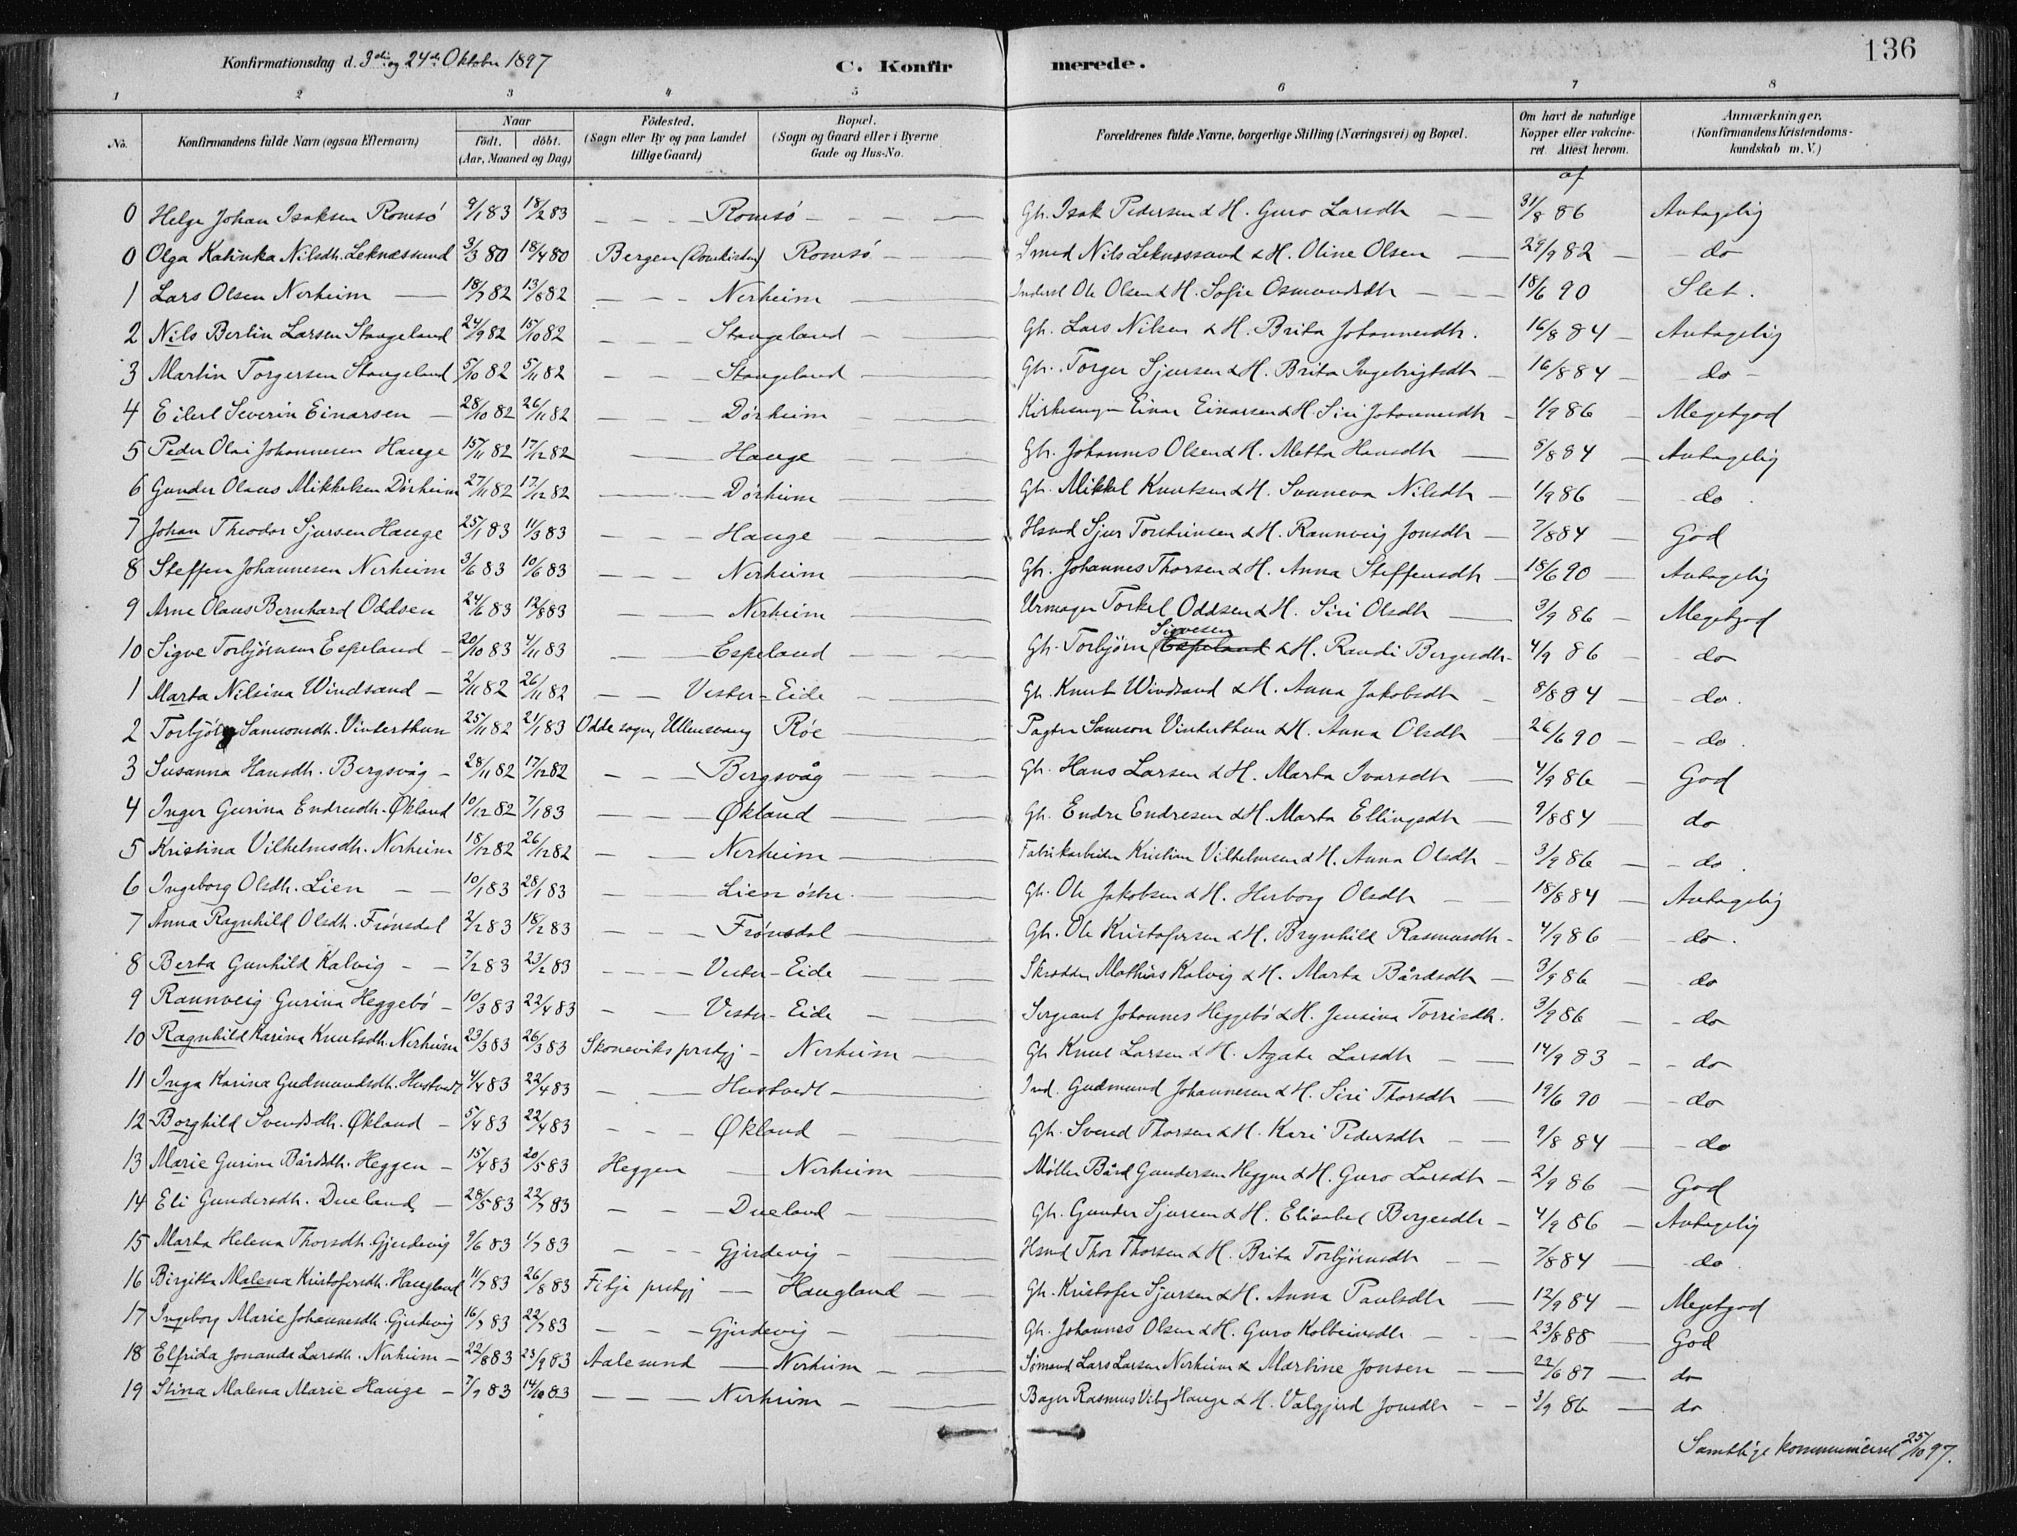 136
Konfirmationsdag d. 3die og 24de Oktober 1897 C. Konfirmerede.
1 2 3 4 5 6 7 8
No. Konfirmandens fulde Navn (ogsaa Efternavn) Naar født. døbt. (Aar, Maaned og Dag) Fødested. (Sogn eller By og paa Landet tillige Gaard) Bopæl. (Sogn og Gaard eller i Byerne Gade og Hus-No. Forældrenes fulde Navne, borgerlige Stilling (Næringsvei) og Bopæl. Om havt de naturlige Kopper eller vakcineret. Attest herom. Anmærkninger. (Konfirmandens Kristendomskundskab m. V.)
af
0 Helge Johan Isaksen Romsø 9/1 83 18/2 83 — — — Romsø — Gh. Isak Pedersen & H. Guro Larsdtr — 31/8 86 Antagelig
0 Olga Katinka Nilsdtr. Leknessund 3/3 80 18/4 80 Bergen (Domkirken) Romsø — Smed Nils Leknessund & H. Oline Olsen — 29/9 82 — do
1 Lars Olsen Nerheim — 18/7 82 13/8 82 — — — Nerheim — Inderst Ole Olsen & H. Sofie Osmundsdtr — 18/6 90 Slet.
2 Nils Berlin Larsen Stangeland 24/9 82 15/10 82 — — — Stangeland — Gh. Lars Nilsen & H. Brita Johannesdtr. 16/8 84 — Antagelig
3 Martin Torgersen Stangeland 5/10 82 5/11 82 — — — Stangeland — Gh. Torger Sjursen & H. Brita Ingebrigtsdtr — 16/8 84 — do —
4 Eilert Severin Einarsen — 28/10 82 26/11 82 — — Dørheim — Kirkesanger Einar Einarsen & H. Siri Johannesdtr — 1/9 86 — Megetgod
5 Peder Olai Johannesen Hauge 15/11 82 17/12 82 — — Hauge — Gh. Johannes Olsen & H. Metta Hansdtr — 8/8 84 — Antagelig
6 Gunder Olaus Mikkelsen Dørheim 27/11 82 17/12 82 — — Dørheim — Gh. Mikkel Knutsen & H. Sunneva Nilsdtr — 1/9 86 — do.
7 Johan Theodor Sjursen Hauge 25/1 83 11/3 83 — — — Hauge — Hsmd Sjur Torstensen & H. Rannveig Jonsdtr — 7/8 84 — God
8 Steffen Johannesen Nerheim 3/6 83 10/6 83 — — — Nerheim — Gh. Johannes Thorsen & H. Anna Steffensdtr — 18/6 90 — Antagelig
9 Arne Olaus Bernhard Oddsen 24/6 83 12/8 83 — — — Nerheim — Urmager Torkel Oddsen & H. Siri Olsdtr — 3/9 86 — Megetgod
10 Sigve Torbjørnsen Espeland — 20/10 83 4/11 83 — — Espeland — Gh. Torbjørn Sigvesen (Espeland & H. Randi Bergesdtr — 4/9 86 — do
1 Marta Nilsina Windsand — 2/11 82 26/11 82 — — Vester-Eide — Gh. Knut Windsand & H. Anna Jakobsdtr — 8/8 84 — do.
2 Torbjørg Samsonsdtr. Vinterthun 25/11 82 21/1 83 Odde sogn, Ullensvang Røe — Pagter Samson Vinterthun & H. Anna Olsdtr — 26/6 90 — do.
3 Susanna Hansdtr. Bergsvåg — 28/11 82 17/12 82 — — — Bergsvåg — Gh. Hans Larsen & H. Marta Ivarsdtr — 4/9 86 — God
4 Inger Gurina Endresdtr. Økland 10/12 82 7/1 83 — — — Økland — Gh. Endre Endresen & H. Marta Ellingsdtr — 9/8 84 — do
5 Kristina Vilhelmsdtr. Nerheim 18/12 82 26/12 82 — — Nerheim — Fabrikarbeider Kristian Vilhelmsen & H. Anna Olsdtr — 3/9 86 — do
6 Ingeborg Olsdtr. Lien — — 10/1 83 28/1 83 — — Lien østre. — Gh. Ole Jakobsen & H. Herborg Olsdtr — 18/8 84 — Antagelig
7 Anna Ragnhild Olsdtr. Frønsdal 2/2 83 18/2 83 — — — Frønsdal — Gh. Ole Kristofersen & H. Brynhild Rasmusdtr — 4/9 86 — do.
8 Berta Gunhild Kalvig — — 7/2 83 23/2 83 — — — Vester-Eide — Skrædder Mathias Kalvig & H. Marta Bårdsdtr — 3/9 86 — do
9 Rannveig Gurina Heggebø — 10/3 83 22/4 83 — — Vester-Eide — Sergeant Johannes Heggebø & H. Jensina Torrisdtr. 3/9 86 — do
10 Ragnhild Karina Knutsdtr. Nerheim 23/3 83 26/3 83 Skoneviks prstgj — Nerheim — Gh Knut Larsen & H. Agate Larsdtr — 14/9 83 — do
11 Inga Karina Gudmundsdtr. Hustvedt 4/4 83 22/4 83 — — Hustvedt — Ind. Gudmund Johannesen & H. Siri Thorsdtr — 19/6 90 — do
12 Borghild Svendsdtr. Økland — 5/4 83 22/4 83 — — — Økland — Gh. Svend Thorsen & H. Kari Pedersdtr — 9/8 84 — do
13 Marie Gurine Bårdsdtr. Heggen — 15/4 83 20/5 83 Heggen — Nerheim — Møller Bård Gundersen Heggen & H. Guro Larsdtr — 2/9 86 — God
14 Eli Gundersdtr. Dueland — 28/5 83 22/7 83 — — Dueland — Gh. Gunder Sjursen & H. Elisabet Bergesdtr — 4/9 86 — Antagelig
15 Marta Helena Thorsdtr. Gjerdevig 9/6 83 1/7 83 — — Gjerdevig — Hsmd Thor Thorsen & H. Brita Torbjørnsdtr — 7/8 84 — do
16 Birgitta Malena Kristofersdtr. Haugland 11/7 83 26/8 83 Fitje prstgj — Haugland — Gh. Kristofer Sjursen & H. Anna Paulsdtr — 12/9 84 — Megetgod
17 Ingeborg Marie Johannesdtr. Gjerdevig 16/7 83 22/7 83 — — — Gjerdevig — Gh. Johannes Olsen & H. Guro Kolbeinsdtr — 23/8 88 — God
18 Elfrida Jonanda Larsdtr. Nerheim — 22/8 83 23/9 83 Aalesund — Nerheim — Sømand Lars Larsen Nerheim & Martine Jonsen — 22/6 87 — do
19 Stina Malena Marie Hauge — 7/9 83 14/10 83 — — — Nerheim — Bager Rasmus Viby Hauge & H. Valgjerd Jonsdtr — 3/9 86 — do
Samtlige kommuniceret 25/10 97.